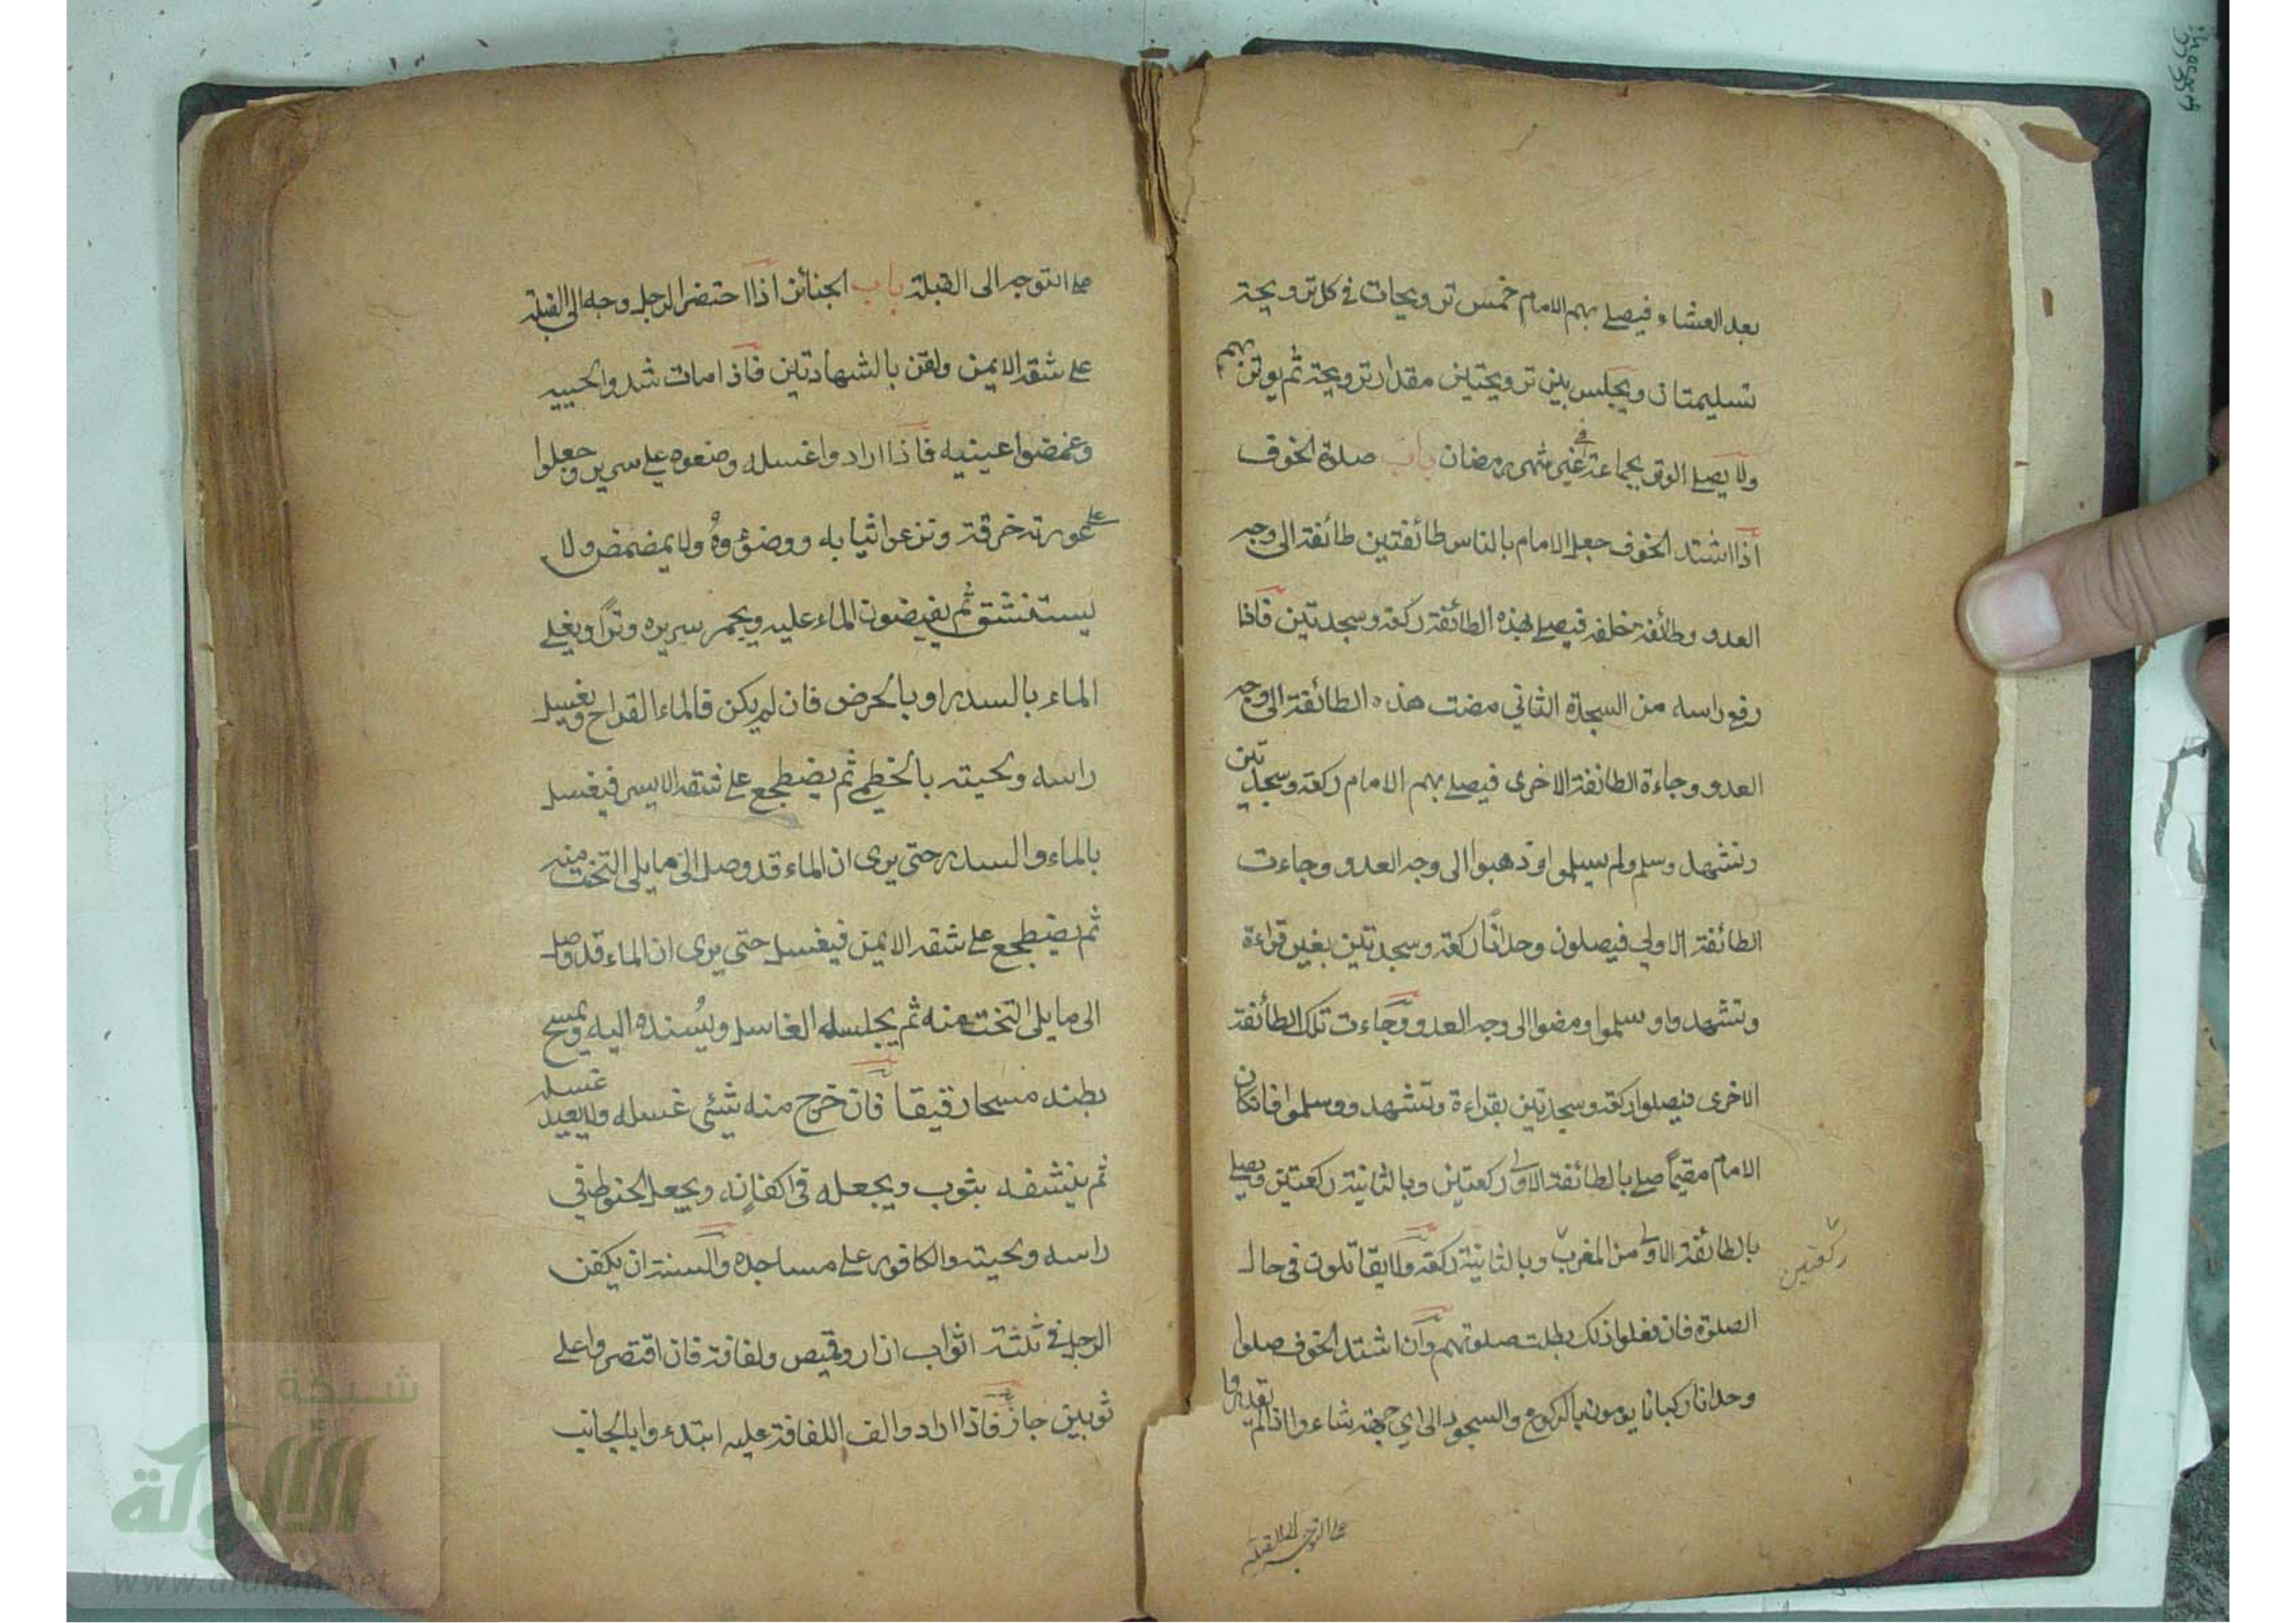 بعد العشاء فيصلے بهم الامام خمس ترويحات في كل ترويحة
تسليمتان ويجلس بين ترويحتين مقدار ترويحة ثم يوتر بهم
ولا يصلے الوتر بجماعة في غير شهر رمضان باب صلوة الخوف
اذا اشتد الخوف جعل الامام بالناس طائفتين طائفة الى وجه
العدو وطائفة خلفه فيصلے بهذه الطائفة ركعة وسجدتين فاذا
رفع راسه من السجدة الثاني مضت هذه الطائفة الى وجه
العدو وجاءة الطائفة الاخرى فيصلے بهم الامام ركعة وسجدتين
وتشهد وسلم ولم يسلموا وذهبوا الى وجه العدو وجاءت
الطائفة الاولي فيصلون وحدانًا ركعة وسجدتين بغير قراءة
وتشهدوا وسلموا ومضوا الى وجه العدو وجاءت تلك الطائفة
الاخرى فيصلوا ركعة وسجدتين بقراءة وتشهدو وسلموا فان كان
الامام مقيمًا صلے بالطائفة الاولى ركعتين وبالثانية ركعتين ويصلے
بالطائفة الاولى من المغرب وبالثانية ركعة ولا يقاتلون في حال
ركعتين
الصلوة فان فعلوا ذلك بطلت صلوتهم وان اشتد الخوف صلوا
وحدانا ركبانا يومون بالركوع والسجود الى اي جهة شاءوا اذا لم يقدروا
على التوجه الى القبلة
على التوجه الى القبلة باب الجنائز اذا احتضر الرجل وجه الى القبلة
على شقه الايمن ولقن بالشهادتين فاذا مات شدوا لحييه
وغمضوا عينيه فاذا ارادوا غسله وضعوه على سرير وجعلوا
على عورته خرقة ونزعوا ثيابه ووضؤوهُ ولا يمضمض ولا
يستنشق ثم يفيضون الماء عليه ويجمر سريره وترًا ويغلے
الماء بالسدر او بالحرض فان لم يكن فالماء القراح ويغسل
راسه ولحيته بالخطمي ثم يضطجع على شقه الايسر فيغسل
بالماء والسدر حتى يرى ان الماء قد وصل الى ما يلى التخت منه
ثم يضطجع على شقه الايمن فيغسل حتى يرى ان الماء قد وصل
الى ما يلى التخت منه ثم يجلسه الغاسل ويُسنده اليه ويمسح
بطنه مسحا رقيقا فان خرج منه شئى غسله ولا يعيد غسله
ثم ينشفه بثوب ويجعله في اكفانه ويجعل الحنوط في
راسه ولحيته والكافور على مساجده والسنة ان يكفن
الرجل في ثلثة اثواب ازار وقميص ولفافة فان اقتصروا على
ثوبين جاز فاذا ارادوا لف اللفافة عليه ابتدءوا بالجانب
شبكة
الألوكة
www.alukah.net